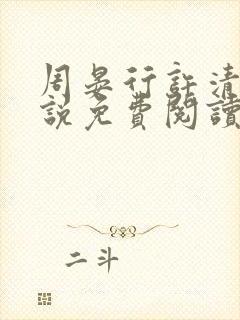 周晏行許清
說免費閱讀
二斗